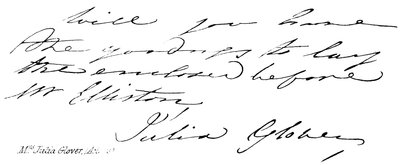 Will you have
the goodness to lay
the enclosed before
Mr Elliston,
Julia Glover
Mrs. Julia Glover,